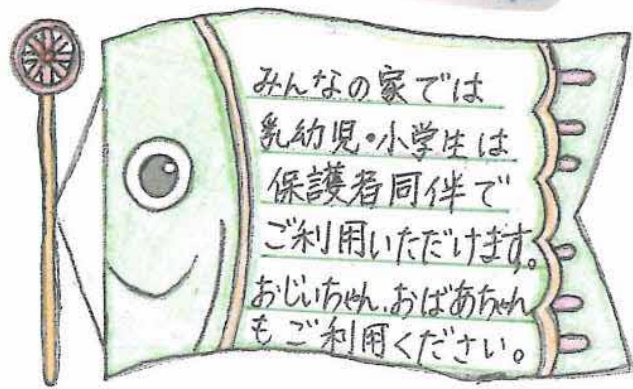 みんなの家では
乳幼児・小学生は
保護者同伴で
ご利用いただけます。
おじいちゃん、おばあちゃん
もご利用ください。